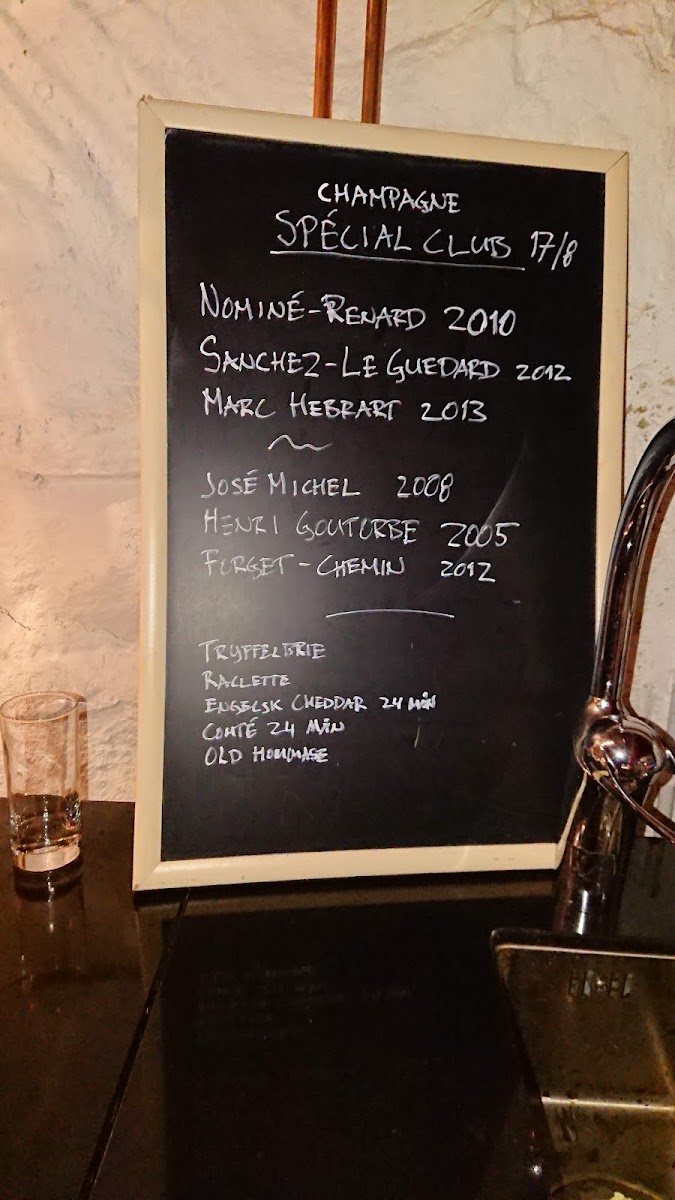 CHAMPAGNE
SPÉCIAL CLUB 17/8
NOMINÉ-RENARD 2010
SANCHEZ-LE GUEDARD 2012
MARC HEBRART 2013
JOSÉ MICHEL 2008
HENRI GOUTORBE 2005
FORGET-CHEMIN 2012
TRYFFELBRIE
RACLETTE
ENGELSK CHEDDAR 24 MÅN
COMTÉ 24 MÅN
OLD